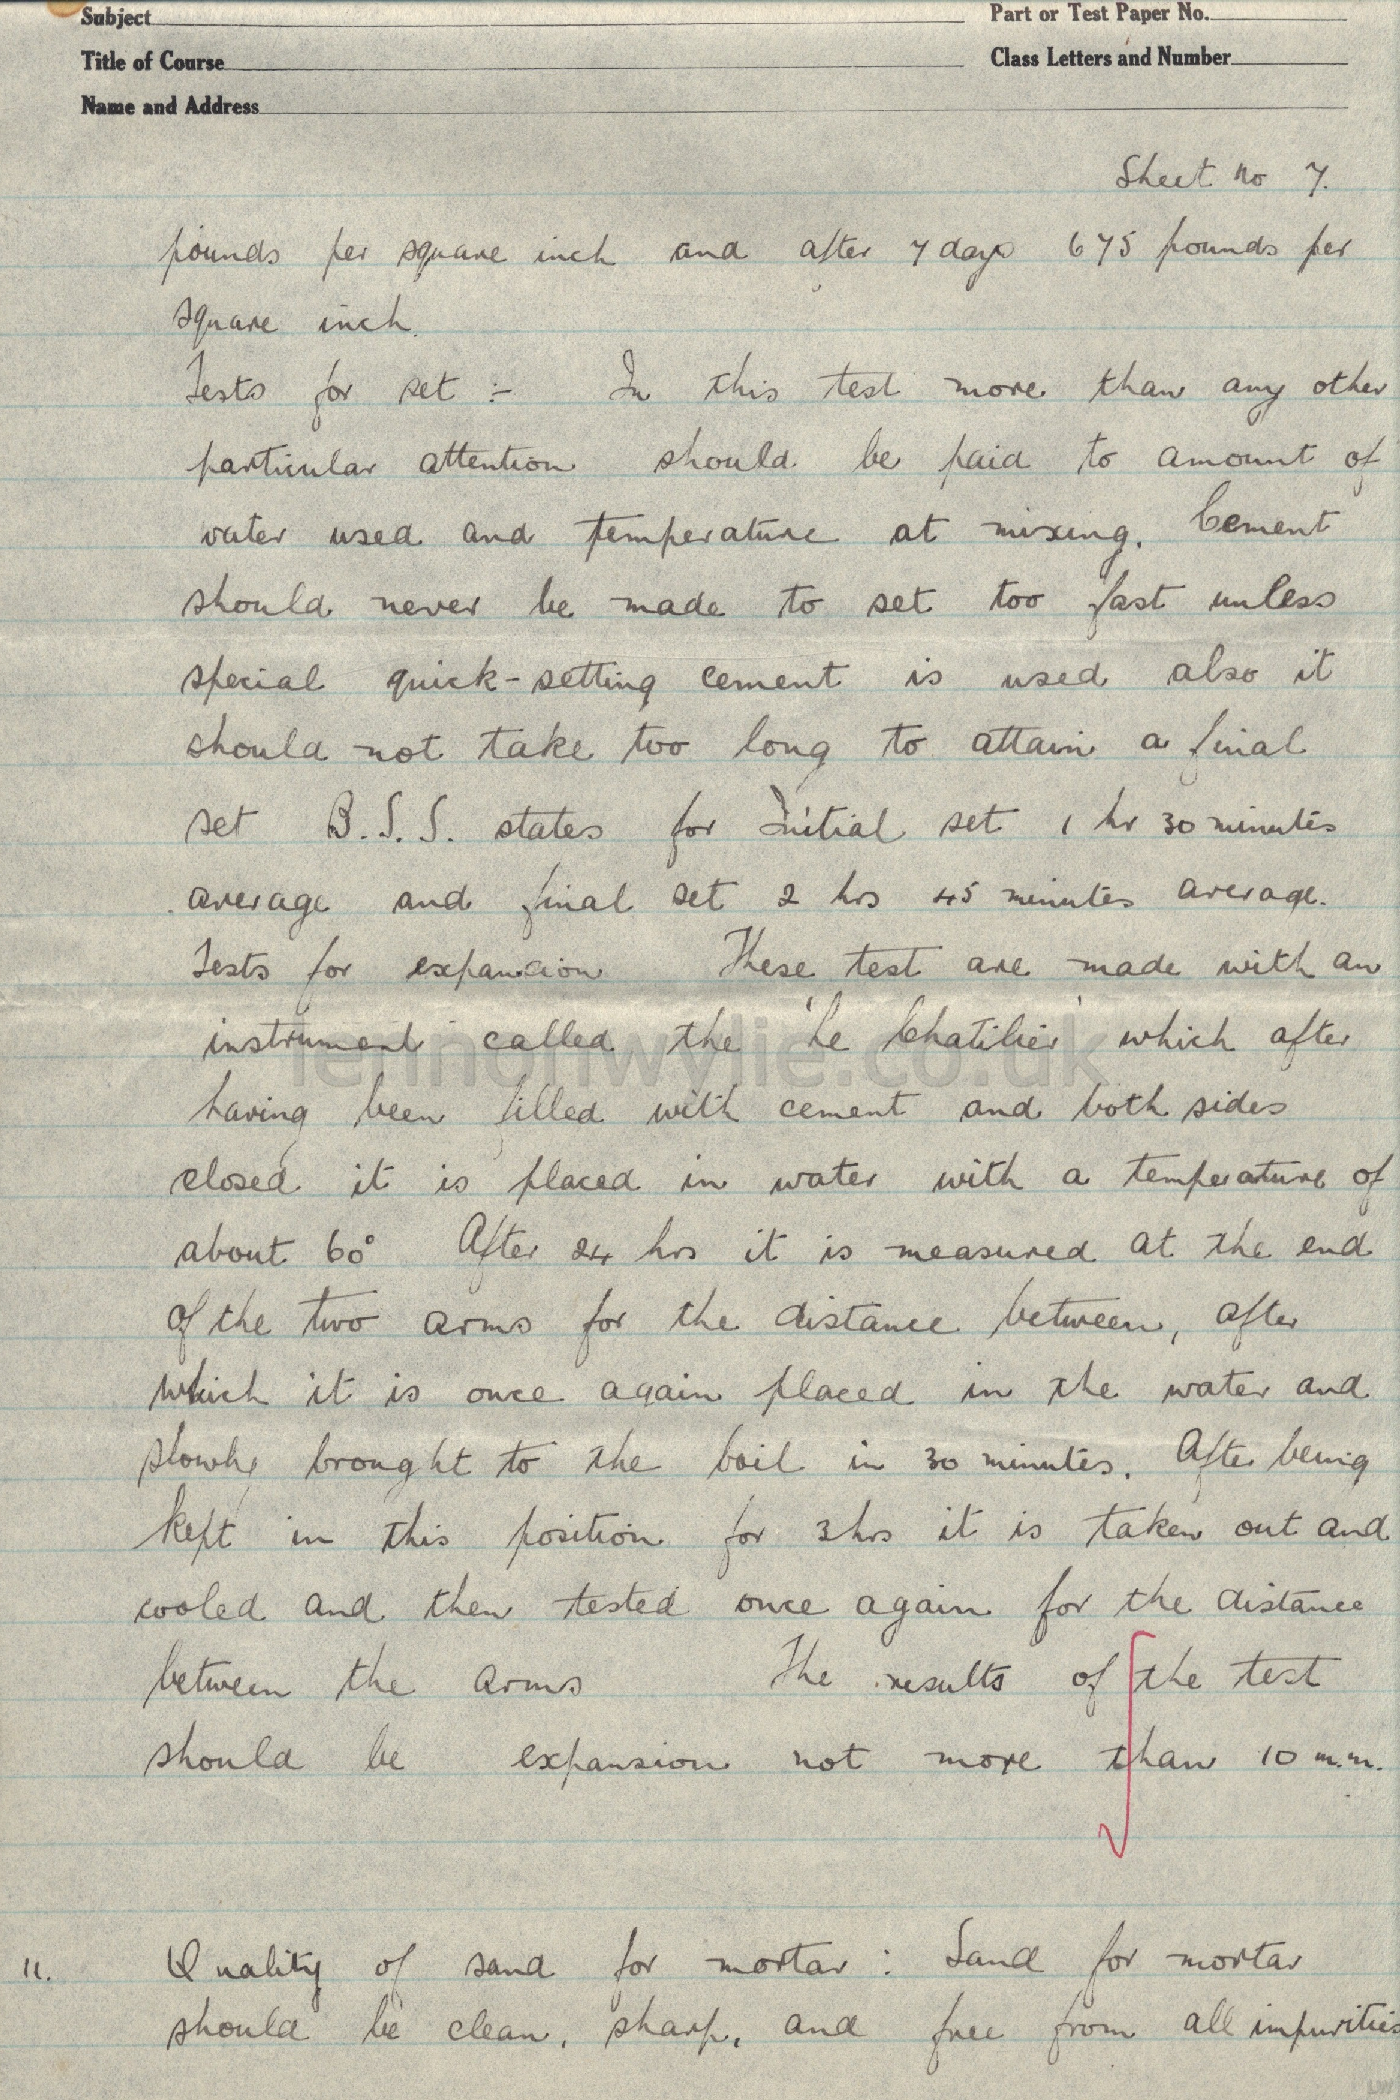 Subject
Part or Test Paper No.
Title of Course
Class Letters and Number
Name and Address
Sheet No 7.
pounds per square inch and after 7 days 675 pounds per
square inch.
Tests for set :- In this test more than any other
particular attention should be paid to amount of
water used and temperature at mixing. Cement
should never be made to set too fast unless
special quick-setting cement is used also it
should not take too long to attain a final
set B.S.S. states for Initial set 1 hr 30 minutes
average and final set 2 hrs 45 minutes average.
Tests for expansion These test are made with an
instrument called the 'Le Chatilier' which after
lennonwylie.co.uk
having been filled with cement and both sides
closed it is placed in water with a temperature of
about 60° After 24 hrs it is measured at the end
of the two arms for the distance between, after
which it is once again placed in the water and
slowly brought to the boil in 30 minutes. After being
kept in this position for 3 hrs it is taken out and
cooled and then tested once again for the distance
between the arms The results of the test
should be expansion not more than 10 m.m.
11. Quality of sand for mortar : Sand for mortar
should be clean, sharp, and free from all impurities